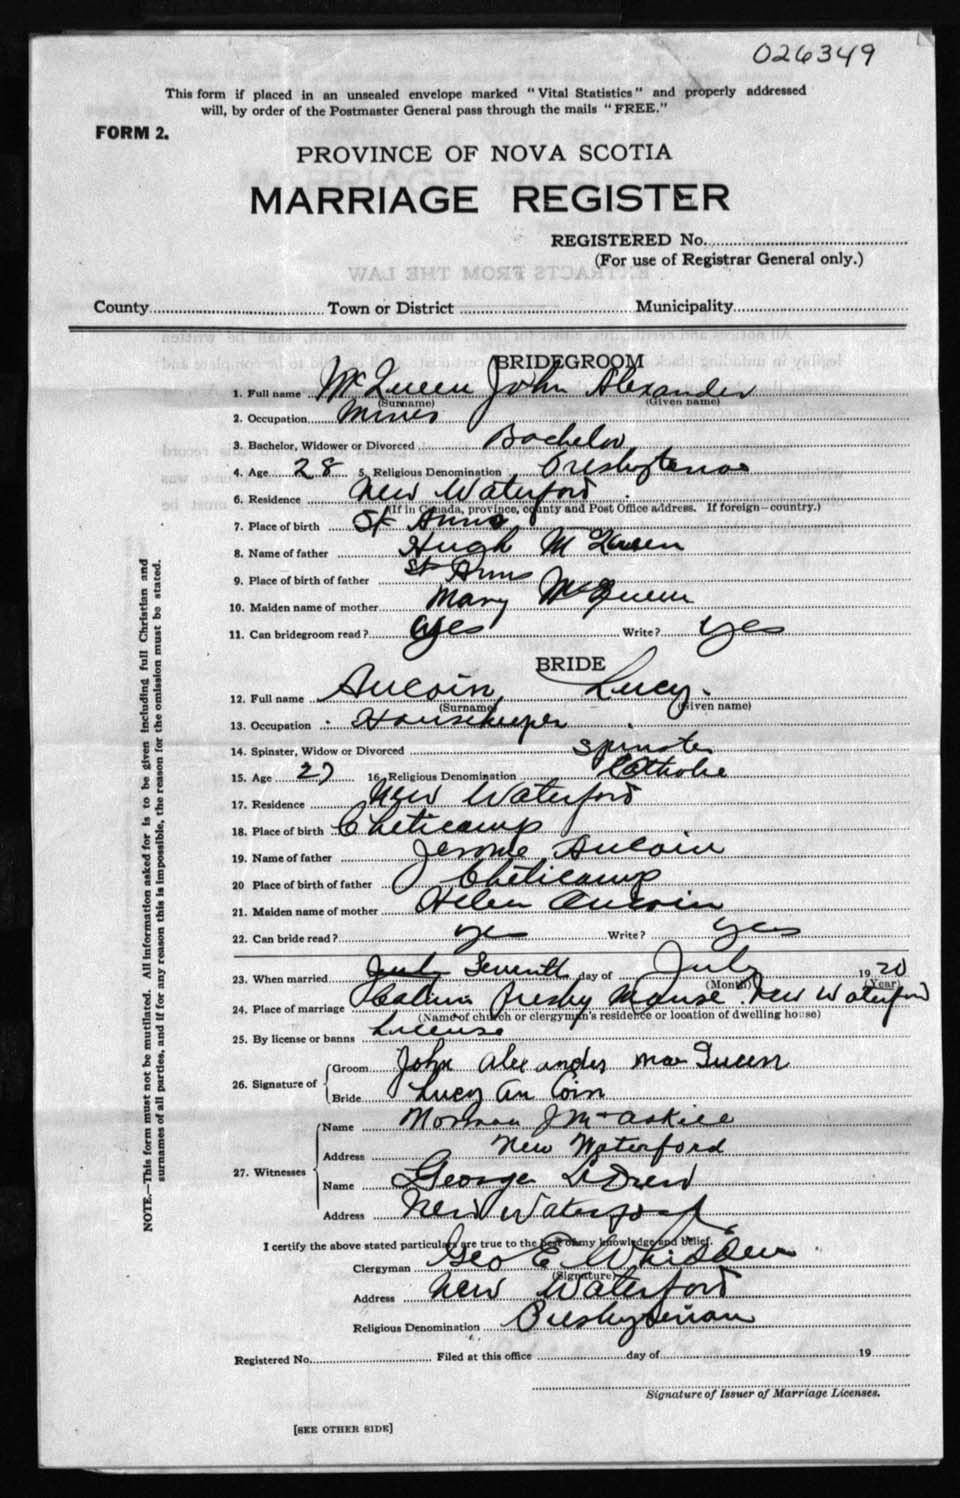 026349
This form if placed in an unsealed envelope marked "Vital Statistics" and properly addressed
will, by order of the Postmaster General pass through the mails "FREE."
FORM 2.
PROVINCE OF NOVA SCOTIA
MARRIAGE REGISTER
REGISTERED No.
(For use of Registrar General only.)
County Town or District Municipality
BRIDEGROOM
1. Full name McQueen John Alexander
(Surname) (Given name)
2. Occupation Miner
3. Bachelor, Widower or Divorced Bachelor
4. Age 28 5. Religious Denomination Presbyterian
6. Residence New Waterford
(If in Canada, province, county and Post Office address. If foreign—country.)
7. Place of birth St Anns
8. Name of father Hugh McQueen
9. Place of birth of father St Anns
10. Maiden name of mother Mary McQueen
11. Can bridegroom read? Yes Write? Yes
BRIDE
12. Full name Aucoin, Lucy.
(Surname) (Given name)
13. Occupation Housekeeper
14. Spinster, Widow or Divorced Spinster
15. Age 27 16. Religious Denomination Catholic
17. Residence New Waterford
18. Place of birth Cheticamp
19. Name of father Jerome Aucoin
20 Place of birth of father Cheticamp
21. Maiden name of mother Helen Aucoin
22. Can bride read? yes Write? yes
23. When married July Seventh day of July 1920
(Month) (Year)
24. Place of marriage Calvin Presby Manse. New Waterford
(Name of church or clergyman's residence or location of dwelling house)
25. By license or banns License
26. Signature of Groom John Alexander MacQueen
Bride Lucy Au Coin
27. Witnesses Name Norman J McAskill
Address New Waterford
Name George
Address New Waterford
I certify the above stated particulars are true to the best of my knowledge and belief.
Clergyman Geo E Whidden
(Signature)
Address New Waterford
Religious Denomination Presbyterian
Registered No. Filed at this office day of 19
Signature of Issuer of Marriage Licenses.
[SEE OTHER SIDE]
NOTE.—This form must not be mutilated. All information asked for is to be given including full Christian and
surnames of all parties, and if for any reason this is impossible, the reason for the omission must be stated.